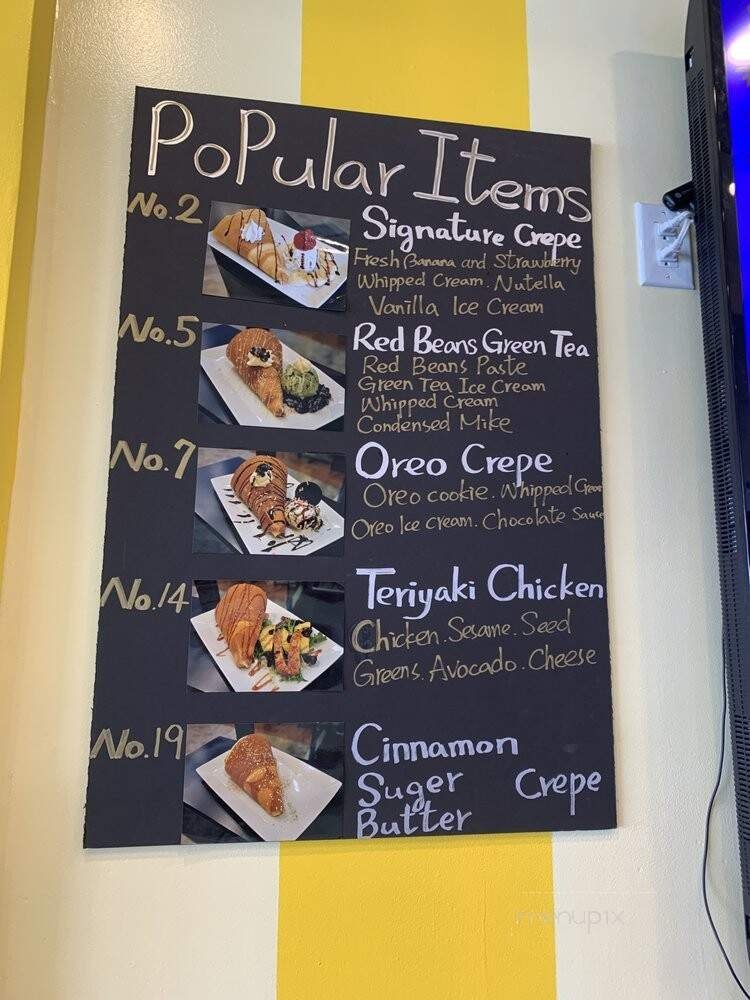 PoPular Items
No.2
Signature Crepe
Fresh Banana and Strawberry
Whipped Cream. Nutella
Vanilla Ice Cream
No.5
Red Beans Green Tea
Red Beans Paste
Green Tea Ice Cream
Whipped Cream
Condensed Mike
No.7
Oreo Crepe
Oreo cookie. Whipped Cream
Oreo Ice cream. Chocolate Sauce
No.14
Teriyaki Chicken
Chicken. Sesame. Seed
Greens. Avocado. Cheese
No.19
Cinnamon
Suger Crepe
Butter
menupix